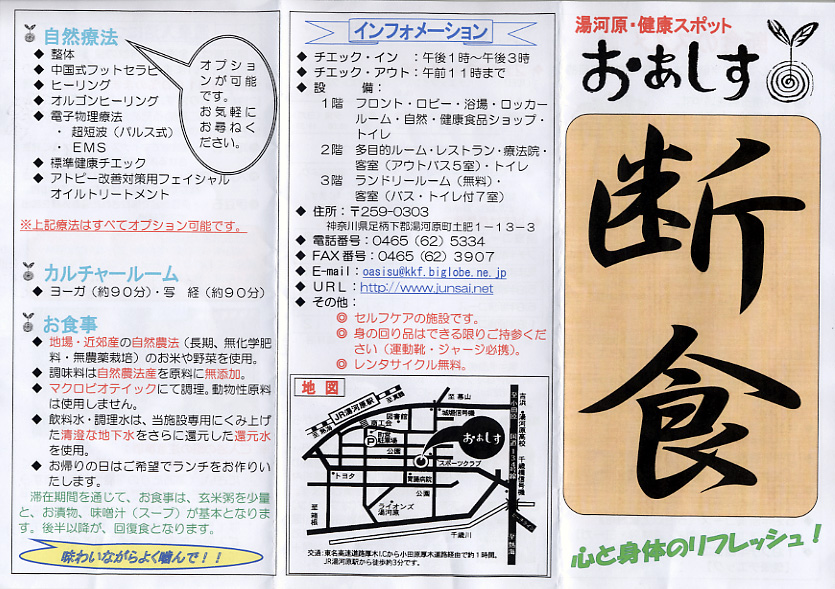 自然療法
◆ 整体
◆ 中国式フットセラピー
◆ ヒーリング
◆ オルゴンヒーリング
◆ 電子物理療法
・ 超短波（パルス式）
・ ＥＭＳ
◆ 標準健康チェック
◆ アトピー改善対策用フェイシャル
オイルトリートメント
オプショ
ンが可能
です。
お気軽に
お尋ねく
ださい。
※上記療法はすべてオプション可能です。
カルチャールーム
◆ ヨーガ（約９０分）・写 経（約９０分）
お食事
◆ 地場・近郊産の自然農法（長期、無化学肥
料・無農薬栽培）のお米や野菜を使用。
◆ 調味料は自然農法産を原料に無添加。
◆ マクロビオテイックにて調理。動物性原料
は使用しません。
◆ 飲料水・調理水は、当施設専用にくみ上げ
た清澄な地下水をさらに還元した還元水
を使用。
◆ お帰りの日はご希望でランチをお作りい
たします。
滞在期間を通じて、お食事は、玄米粥を少量
と、お漬物、味噌汁（スープ）が基本となりま
す。後半以降が、回復食となります。
味わいながらよく噛んで！！
インフォメーション
◆ チエック・イン ：午後１時～午後３時
◆ チエック・アウト：午前１１時まで
◆ 設 備：
１階 フロント・ロビー・浴場・ロッカー
ルーム・自然・健康食品ショップ・
トイレ
２階 多目的ルーム・レストラン・療法院・
客室（アウトバス５室）・トイレ
３階 ランドリールーム（無料）・
客室（バス・トイレ付７室）
◆ 住所：〒259-0303
神奈川県足柄下郡湯河原町土肥１－１３－３
◆ 電話番号：0465（62）5334
◆ FAX番号：0465（62）3907
◆ E-mail：oasisu@kkf.biglobe.ne.jp
◆ URL：http://www.junsai.net
◆ その他：
◎ セルフケアの施設です。
◎ 身の回り品はできる限りご持参くだ
さい（運動靴・ジャージ必携）。
◎ レンタサイクル無料。
地 図
JR湯河原駅
至 真鶴
至 熱海
至 幕山
図書館
商工会
城堀信号機
町営
駐車場
P
公園
おあしす
スポーツクラブ
トヨタ
胃腸病院
公園
至 箱根
ライオンズ
湯河原
千歳川
至 小田原
国道135号線
吉浜
湯河原高校
千歳橋信号機
至 熱海
交通：東名高速道路厚木I.Cから小田原厚木道路経由で約１時間。
JR湯河原駅から徒歩約3分です。
湯河原・健康スポット
おあしす
断
食
心と身体のリフレッシュ！